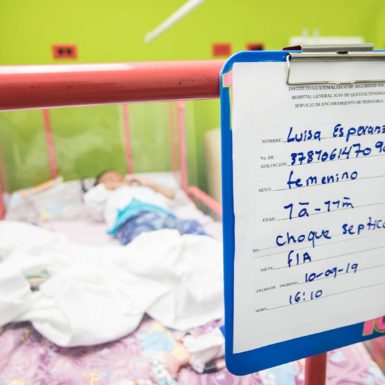 INSTITUTO GUATEMALTECO DE SEGURIDAD SOC
HOSPITAL GENERAL IGSS DE QUETZALTENANGO
SERVICIO DE ENCAMAMIENTO DE PEDIATRIA
NOMBRE Luisa Esperanz
No. DE AFILIACIÓN
SEXO: femenino
EDAD: 1a-11m
choque septico
DIETA
FECHA DE INGRESO 10-09-19
HORA 16:10